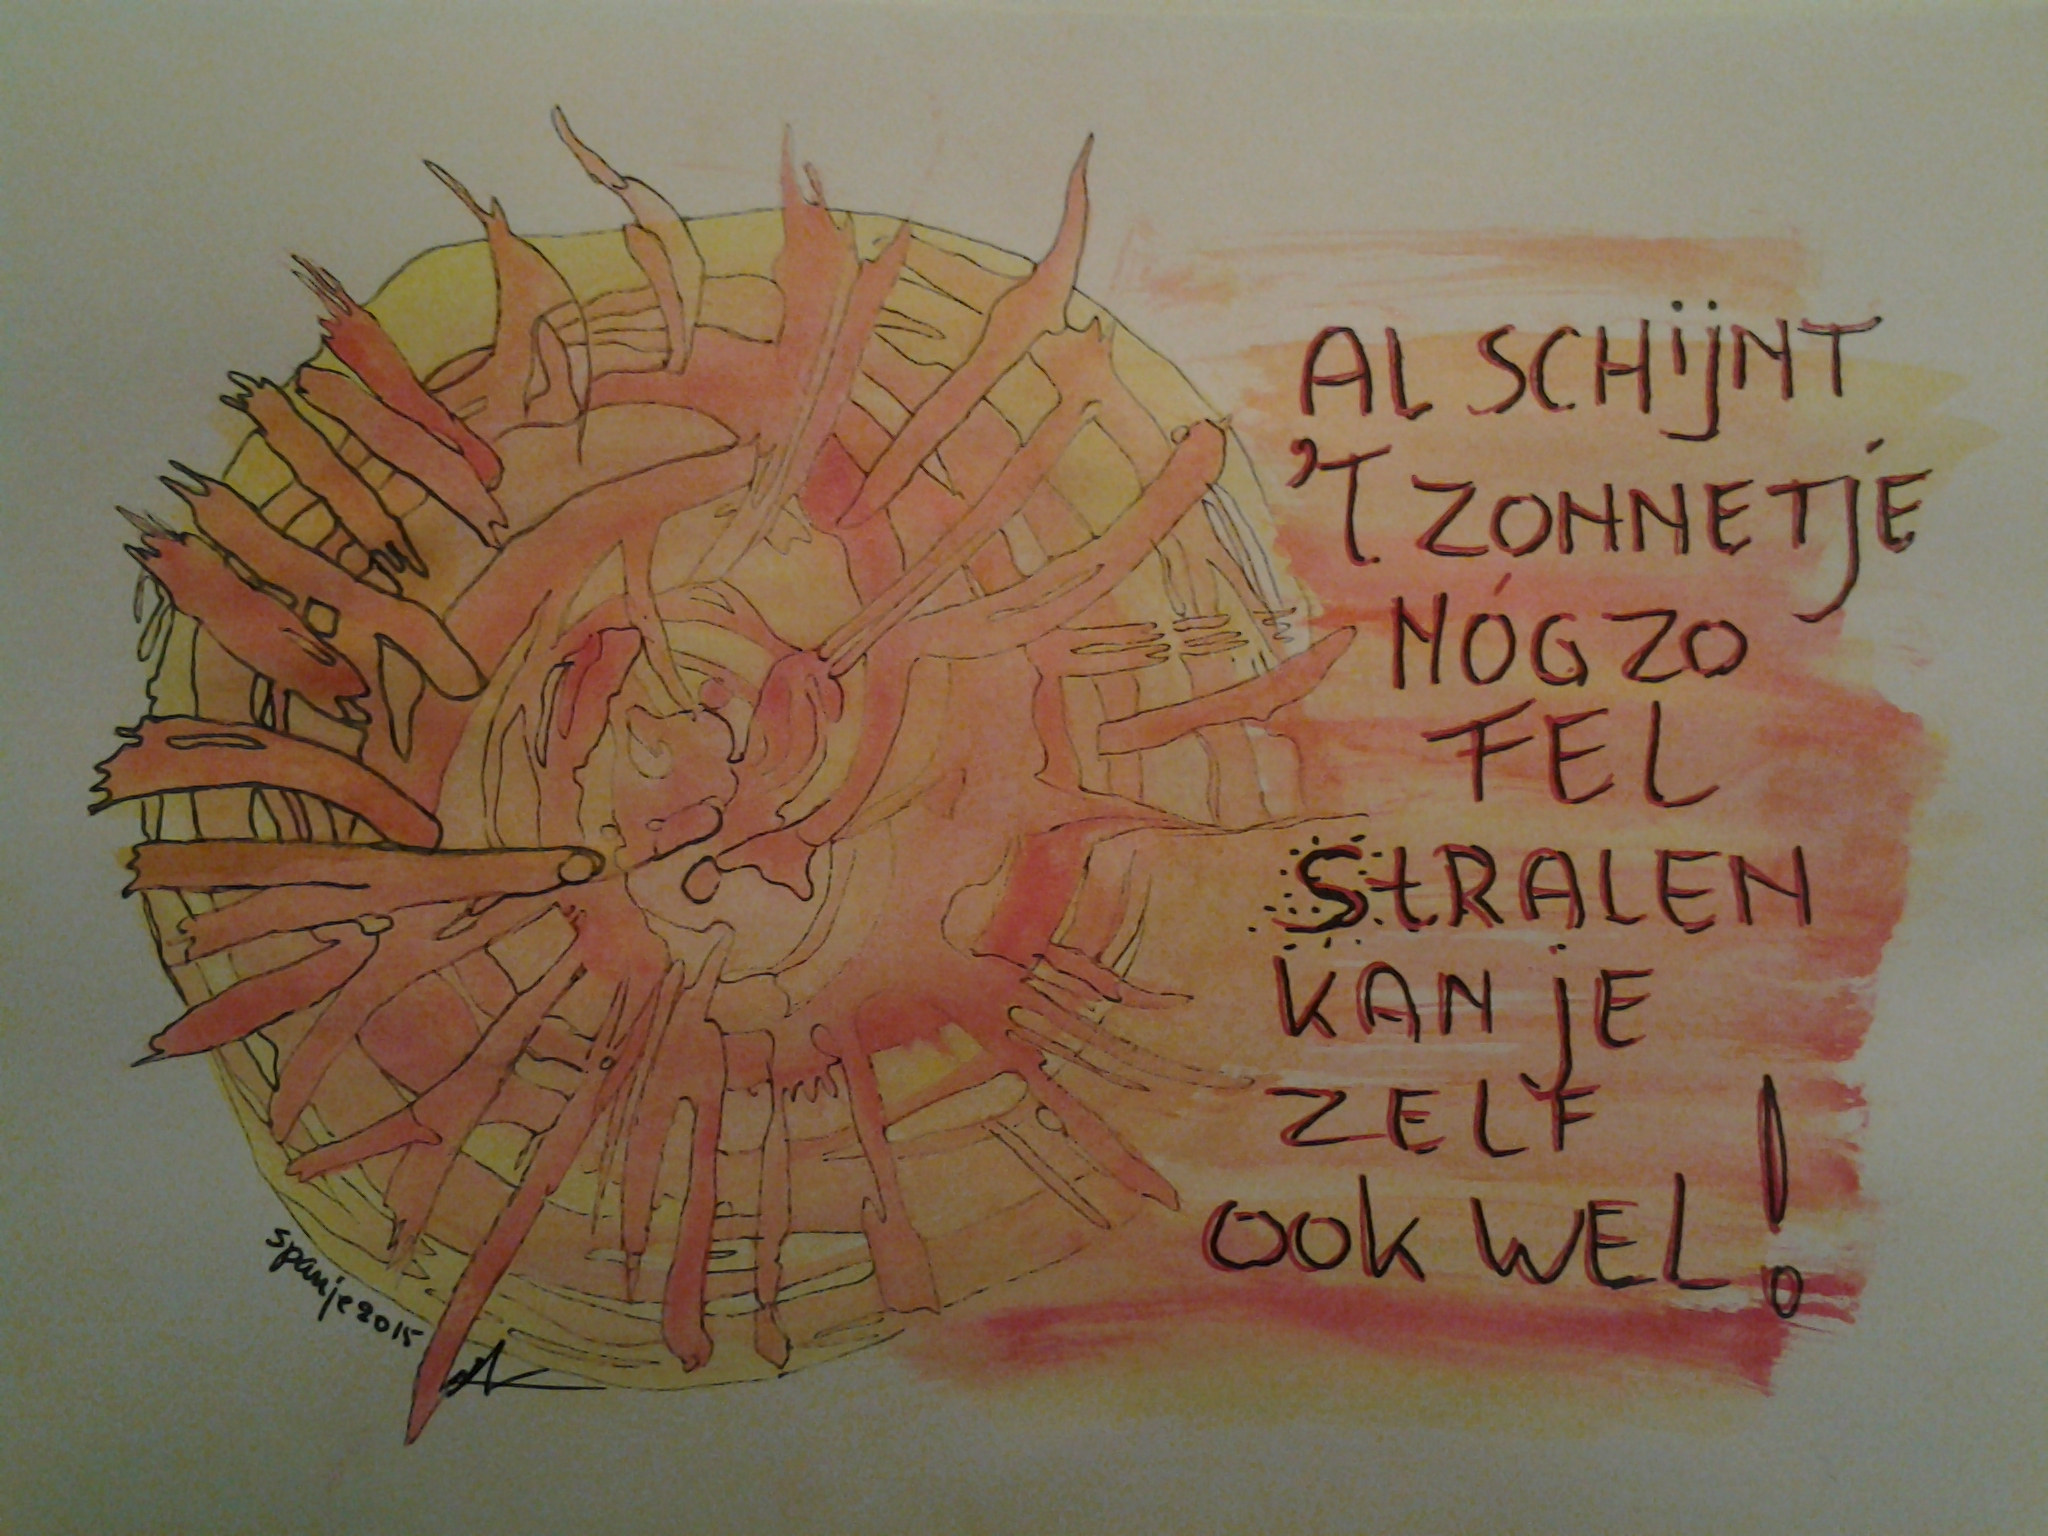 AL SCHIJNT
'T ZONNETJE
NÓG ZO
FEL
STRALEN
KAN JE
ZELF
OOK WEL!
spanje 2015